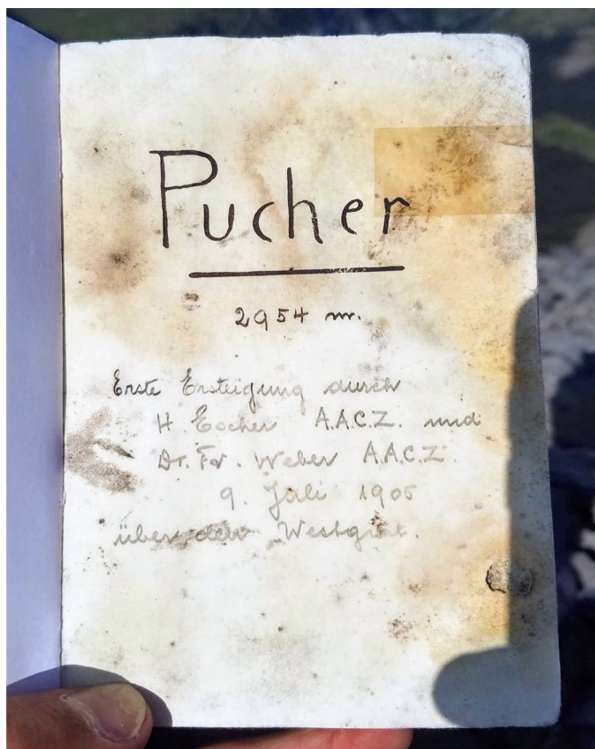 Pucher
2954 m.
Erste Ersteigung durch
H. Escher A.A.C.Z. und
Dr. Fr. Weber A.A.C.Z.
9. Juli 1905
über den Westgrat.